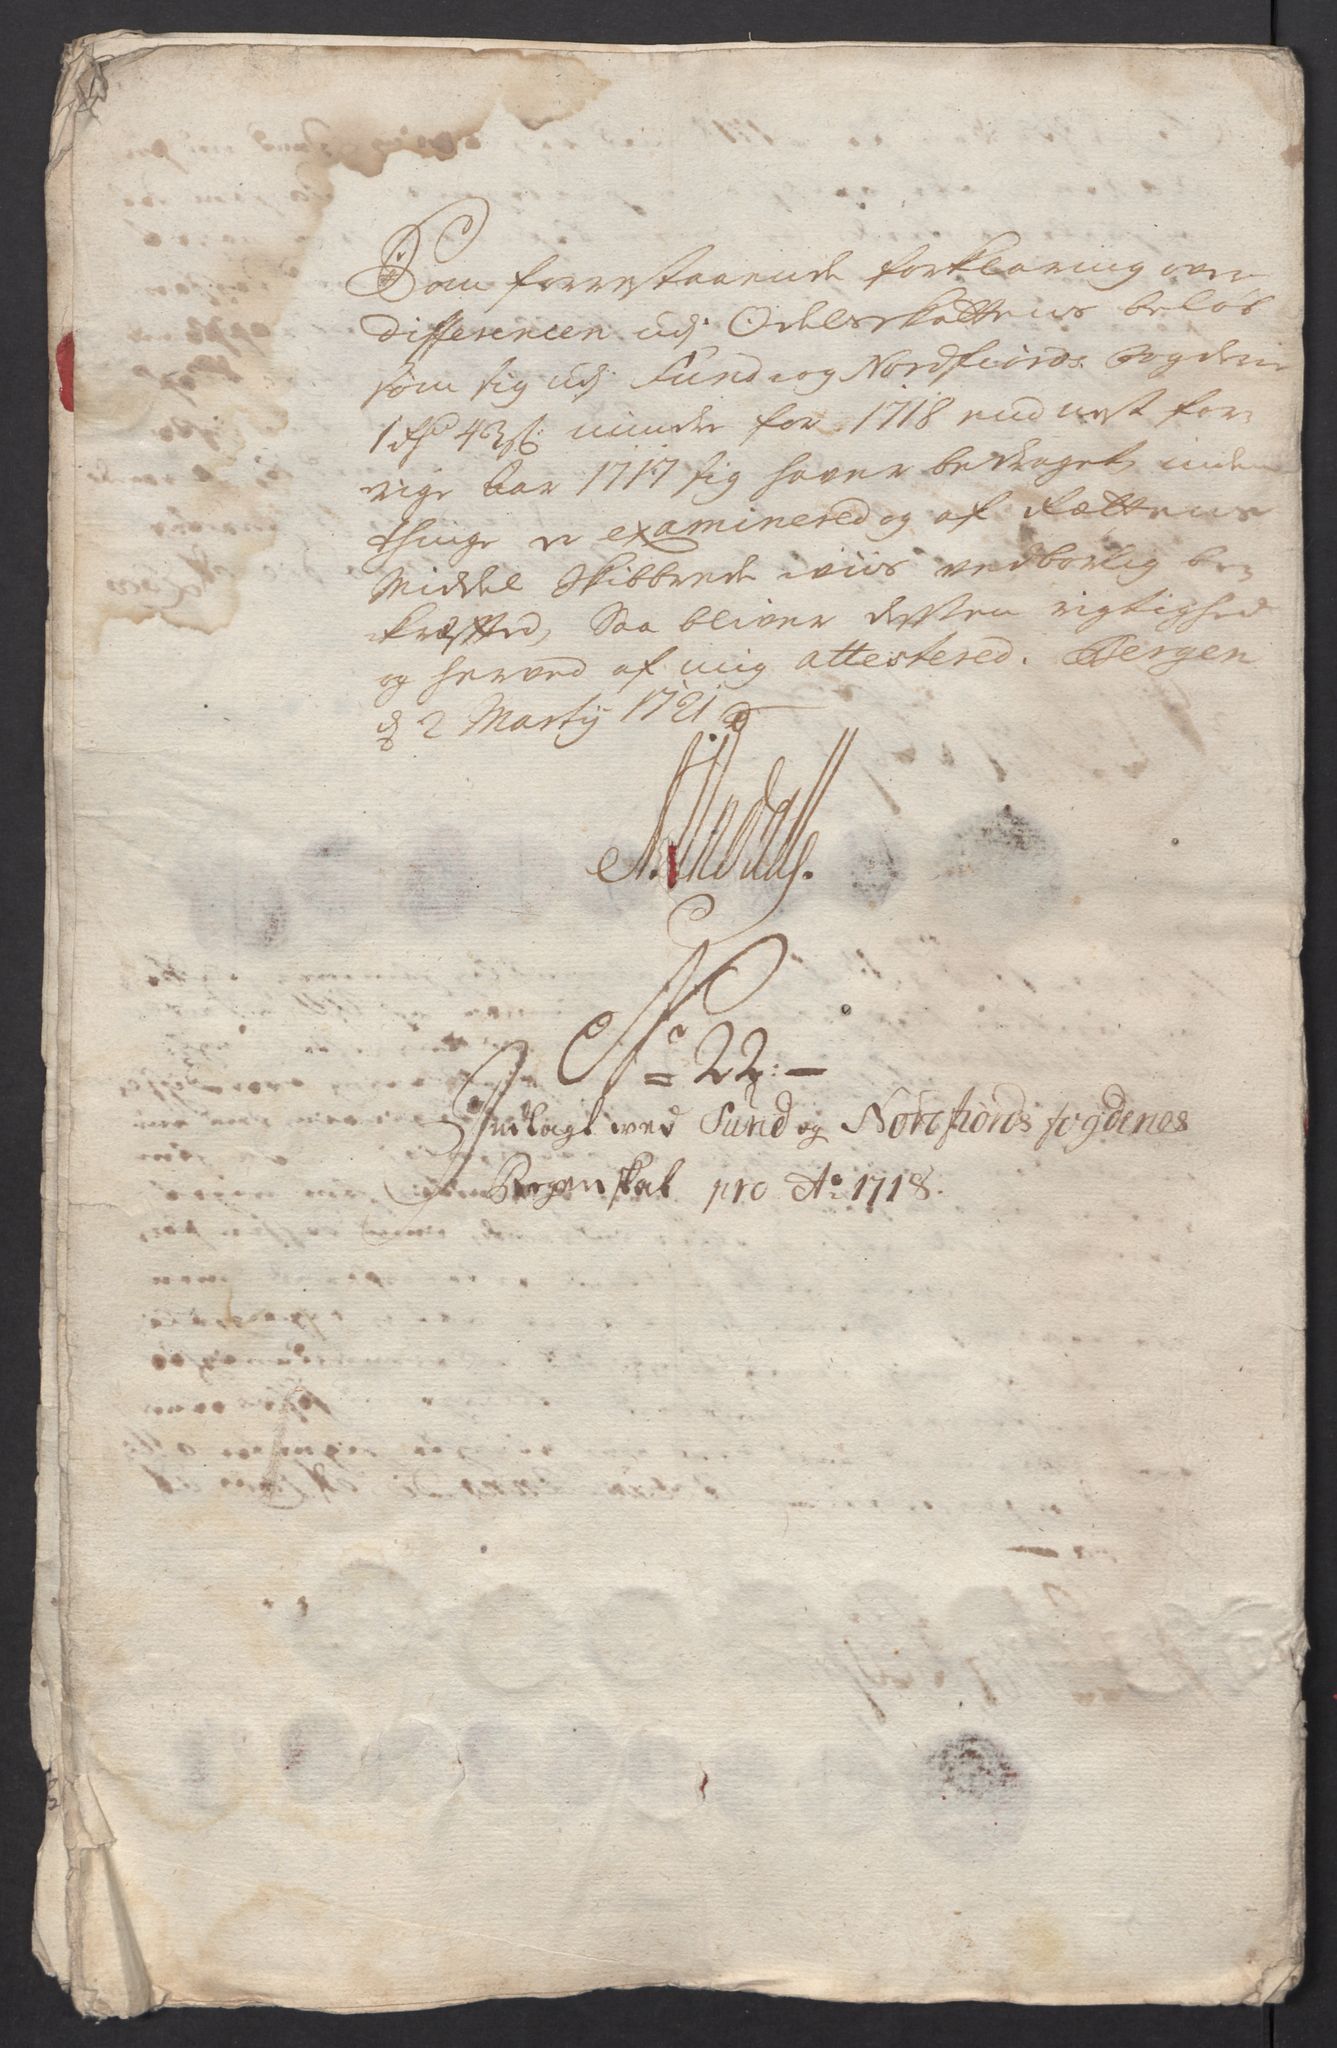 Som forrestaaende forklaring over
differencen udj Odelsskattens beløb
som sig udj Sund og Nordfiords Fogderie
1 4 mindre for 1718 end nest for-
rige Aar 1717 sig haver bedraget, inden
thinge er examinered og af Rættens
Middel Skibbrede viis vedbørlig be-
kræfted, Saa bliver dessen rigtighed
og herved af mig attestered. Bergen
d 2 Martij 1721
No 22:
Indlagt ved Sund og Nordfiords fogderies
Regenskab pro Ao 1718.